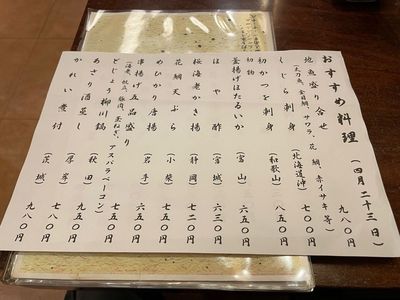 おすすめ料理 (四月二十三日)
地魚盛り合せ 九八〇円
(太刀魚、金目鯛、サワラ、花鯛、赤イサキ等)
しくじら刺身 (北海道沖) 七五〇円
初かつを刺身 (和歌山) 八五〇円
初物
釜揚げほたるいか (富山) 六五〇円
ほや酢 (宮城) 六三〇円
桜海老かき揚 (静岡) 七二〇円
花鯛天ぷら (小柴) 七五〇円
めひかり唐揚 (岩手) 六五〇円
串揚げ五品盛り 七五〇円
(海老、帆立、豚肉、玉ねぎ、アスパラベーコン)
どじょう柳川鍋 (秋田) 九五〇円
あさり酒蒸し (厚岸) 七八〇円
かれい煮付 (茨城) 九八〇円